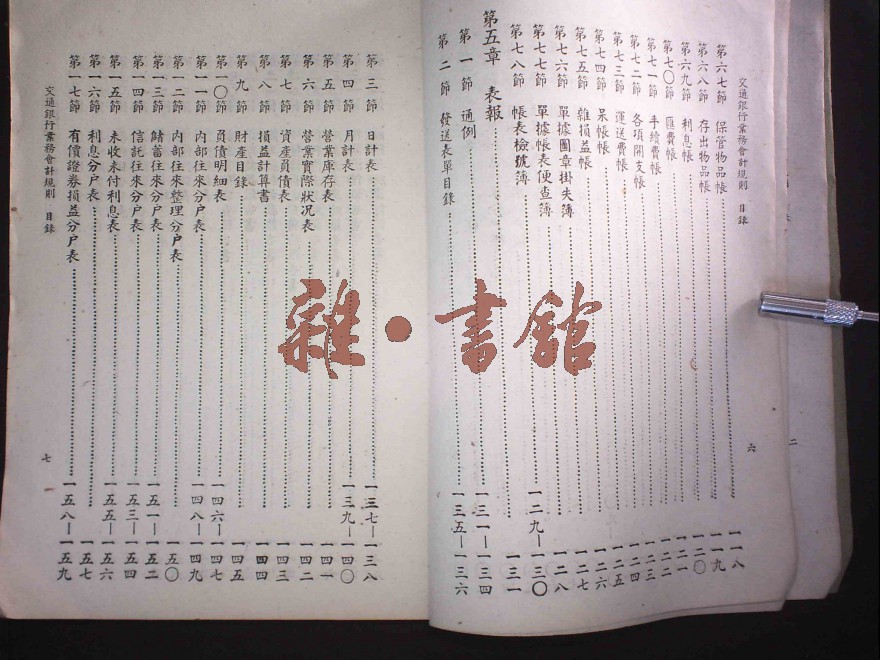 交通銀行業務會計規則 目錄
第六七節 保管物品帳 一一八
第六八節 存出物品帳 一一九
第六九節 利息帳 一二〇
第七〇節 匯費帳 一二一
第七一節 手續費帳 一二三
第七二節 各項開支帳 一二四
第七三節 運送費帳 一二五
第七四節 呆帳帳 一二六
第七五節 雜損益帳 一二七
第七六節 單據圖章掛失簿 一二八
第七七節 單據帳表便查簿 一二九—一三〇
第七八節 帳表檢號簿 一三一
第五章 表報
第一節 通例 一三一—一三四
第二節 發送表單目錄 一三五—一三六
六
第三節 日計表 一三七—一三八
第四節 月計表 一三九—一四〇
第五節 營業庫存表 一四一
第六節 營業實際狀況表 一四二
第七節 資產負債表 一四三
第八節 損益計算書 一四四
第九節 財產目錄 一四五
第一〇節 負債明細表 一四六—一四七
第一一節 內部往來分戶表 一四八—一四九
第一二節 內部往來整理分戶表 一五〇
第一三節 儲蓄往來分戶表 一五一—一五二
第一四節 信託往來分戶表 一五三—一五四
第一五節 未收未付利息表 一五五—一五六
第一六節 利息分戶表 一五七
第一七節 有價證券損益分戶表 一五八—一五九
交通銀行業務會計規則 目錄
七
雜·書館